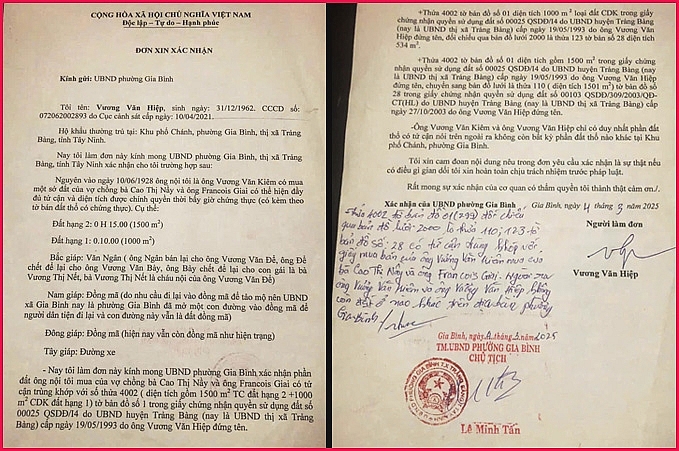 CỘNG HÒA XÃ HỘI CHỦ NGHĨA VIỆT NAM
Độc lập – Tự do – Hạnh phúc
ĐƠN XIN XÁC NHẬN
Kính gửi: UBND phường Gia Bình
Tôi tên: Vương Văn Hiệp, sinh ngày: 31/12/1962. CCCD số:
072062002893 do Cục cảnh sát cấp ngày: 10/04/2021.
Hộ khẩu thường trú tại: Khu phố Chánh, phường Gia Bình, thị xã Trảng
Bàng, tỉnh Tây Ninh.
Nay tôi làm đơn này kính mong UBND phường Gia Bình, thị xã Trảng
Bàng, tỉnh Tây Ninh xác nhận cho tôi trường hợp sau:
Nguyên vào ngày 10/06/1928 ông nội tôi là ông Vương Văn Kiêm có mua
một sở đất của vợ chồng bà Cao Thị Nầy và ông Francois Giai có thể hiện đầy
đủ tứ cận và diện tích được chính quyền thời bấy giờ chứng thực (có kèm theo
tờ bán đất thổ có chứng thực). Cụ thể:
Đất hạng 2: 0 H 15.00 (1500 m²)
Đất hạng 1: 0.10.00 (1000 m²)
Bắc giáp: Văn Ngân (ông Ngân bán lại cho ông Vương Văn Đề, ông Đề
chết để lại cho ông Vương Văn Bảy, ông Bảy chết để lại cho con gái là bà
Vương Thị Nết, bà Vương Thị Nết là cháu nội của ông Vương Văn Đề)
Nam giáp: Đồng mã (do nhu cầu đi lại vào đồng mã để tảo mộ nên UBND
xã Gia Bình nay là phường Gia Bình đã mở một con đường vào đồng mã để
người dân tiện đi lại và con đường này vẫn là đất đồng mã)
Đông giáp: Đồng mã (hiện nay vẫn còn đồng mã như hiện trạng)
Tây giáp: Đường xe
- Nay tôi làm đơn này kính mong UBND phường Gia Bình xác nhận phần
đất ông nội tôi mua của vợ chồng bà Cao Thị Nầy và ông Francois Giai có tứ
cận trùng khớp với số thửa 4002 (diện tích gồm 1500 m² TC đất hạng 2 +1000
m² CDK đất hạng 1) tờ bản đồ số 1 trong giấy chứng nhận quyền sử dụng đất số
00025 QSDĐ/I4 do UBND huyện Trảng Bàng (nay là UBND thị xã Trảng
Bàng) cấp ngày 19/05/1993 do ông Vương Văn Hiệp đứng tên.
+Thửa 4002 tờ bản đồ số 01 diện tích 1000 m² loại đất CDK trong giấy
chứng nhận quyền sử dụng đất số 00025 QSDĐ/I4 do UBND huyện Trảng Bàng
(nay là UBND thị xã Trảng Bàng) cấp ngày 19/05/1993 do ông Vương Văn
Hiệp đứng tên, đối chiếu qua bản đồ lưới 2000 là thửa 123 tờ bản số 28 diện tích
534 m².
+Thửa 4002 tờ bản đồ số 01 diện tích gồm 1500 m² trong giấy chứng nhận
quyền sử dụng đất số 00025 QSDĐ/I4 do UBND huyện Trảng Bàng (nay
là UBND thị xã Trảng Bàng) cấp ngày 19/05/1993 do ông Vương Văn Hiệp
đứng tên, chuyển sang bản đồ lưới là thửa 110 (diện tích 1501 m²) tờ bản đồ số
28 trong giấy chứng nhận quyền sử dụng đất số 00103 QSDĐ/309/2003/QĐ-
CT(HL) do UBND huyện Trảng Bàng (nay là UBND thị xã Trảng Bàng) cấp
ngày 27/10/2003 do ông Vương Văn Hiệp đứng tên.
-Ông Vương Văn Kiêm và ông Vương Văn Hiệp chỉ có duy nhất phần đất
thổ có tứ cận nói trên ngoài ra không còn bất kỳ phần đất thổ nào khác tại Khu
phố Chánh, phường Gia Bình.
Tôi xin cam đoan nội dung nêu trong đơn yêu cầu xác nhận là sự thật nếu
có điều gì gian dối tôi xin hoàn toàn chịu trách nhiệm trước pháp luật.
Rất mong sự xác nhận của cơ quan có thẩm quyền tôi thành thật cảm ơn./.
Xác nhận của UBND phường Gia Bình
Gia Bình, ngày 4 tháng 3 năm 2025
Người làm đơn
Vương Văn Hiệp
Thửa 4002 tờ bản đồ 01 (299) đối chiếu
qua bản đồ lưới 2000 là thửa 110; 123 tờ
bản đồ số 28 có tứ cận trùng khớp với
giấy mua bán của ông Vương Văn Kiêm mua của
bà Cao Thị Nầy và ông Francois Giai. Ngoài ra
ông Vương Văn Kiêm và ông Vương Văn Hiệp không
còn đất ở nào khác trên địa bàn phường
Gia Bình./
Gia Bình, ngày 4 tháng 3 năm 2025
TM.UBND PHƯỜNG GIA BÌNH
CHỦ TỊCH
Lê Minh Tấn